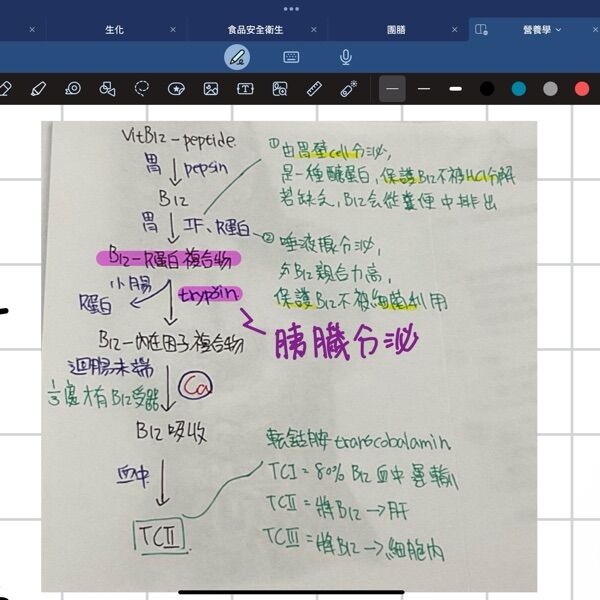 生化
食品安全衛生
團膳
營養學
VitB12-peptide
胃 pepsin
B12
胃 IF、R蛋白
B12-R蛋白複合物
小腸
R蛋白 trypsin
B12-內在因子複合物
迴腸末端
Ca
1/3處才有B12受器
B12吸收
血中
TCII
①由胃壁cell分泌,
是一種醣蛋白,保護B12不被HCl分解
若缺乏,B12會從糞便中排出
②唾液腺分泌,
與B12親合力高,
保護B12不被細菌利用
胰臟分泌
轉鈷胺transcobalamin
TCI=80% B12血中運輸
TCII=將B12→肝
TCIII=將B12→細胞內